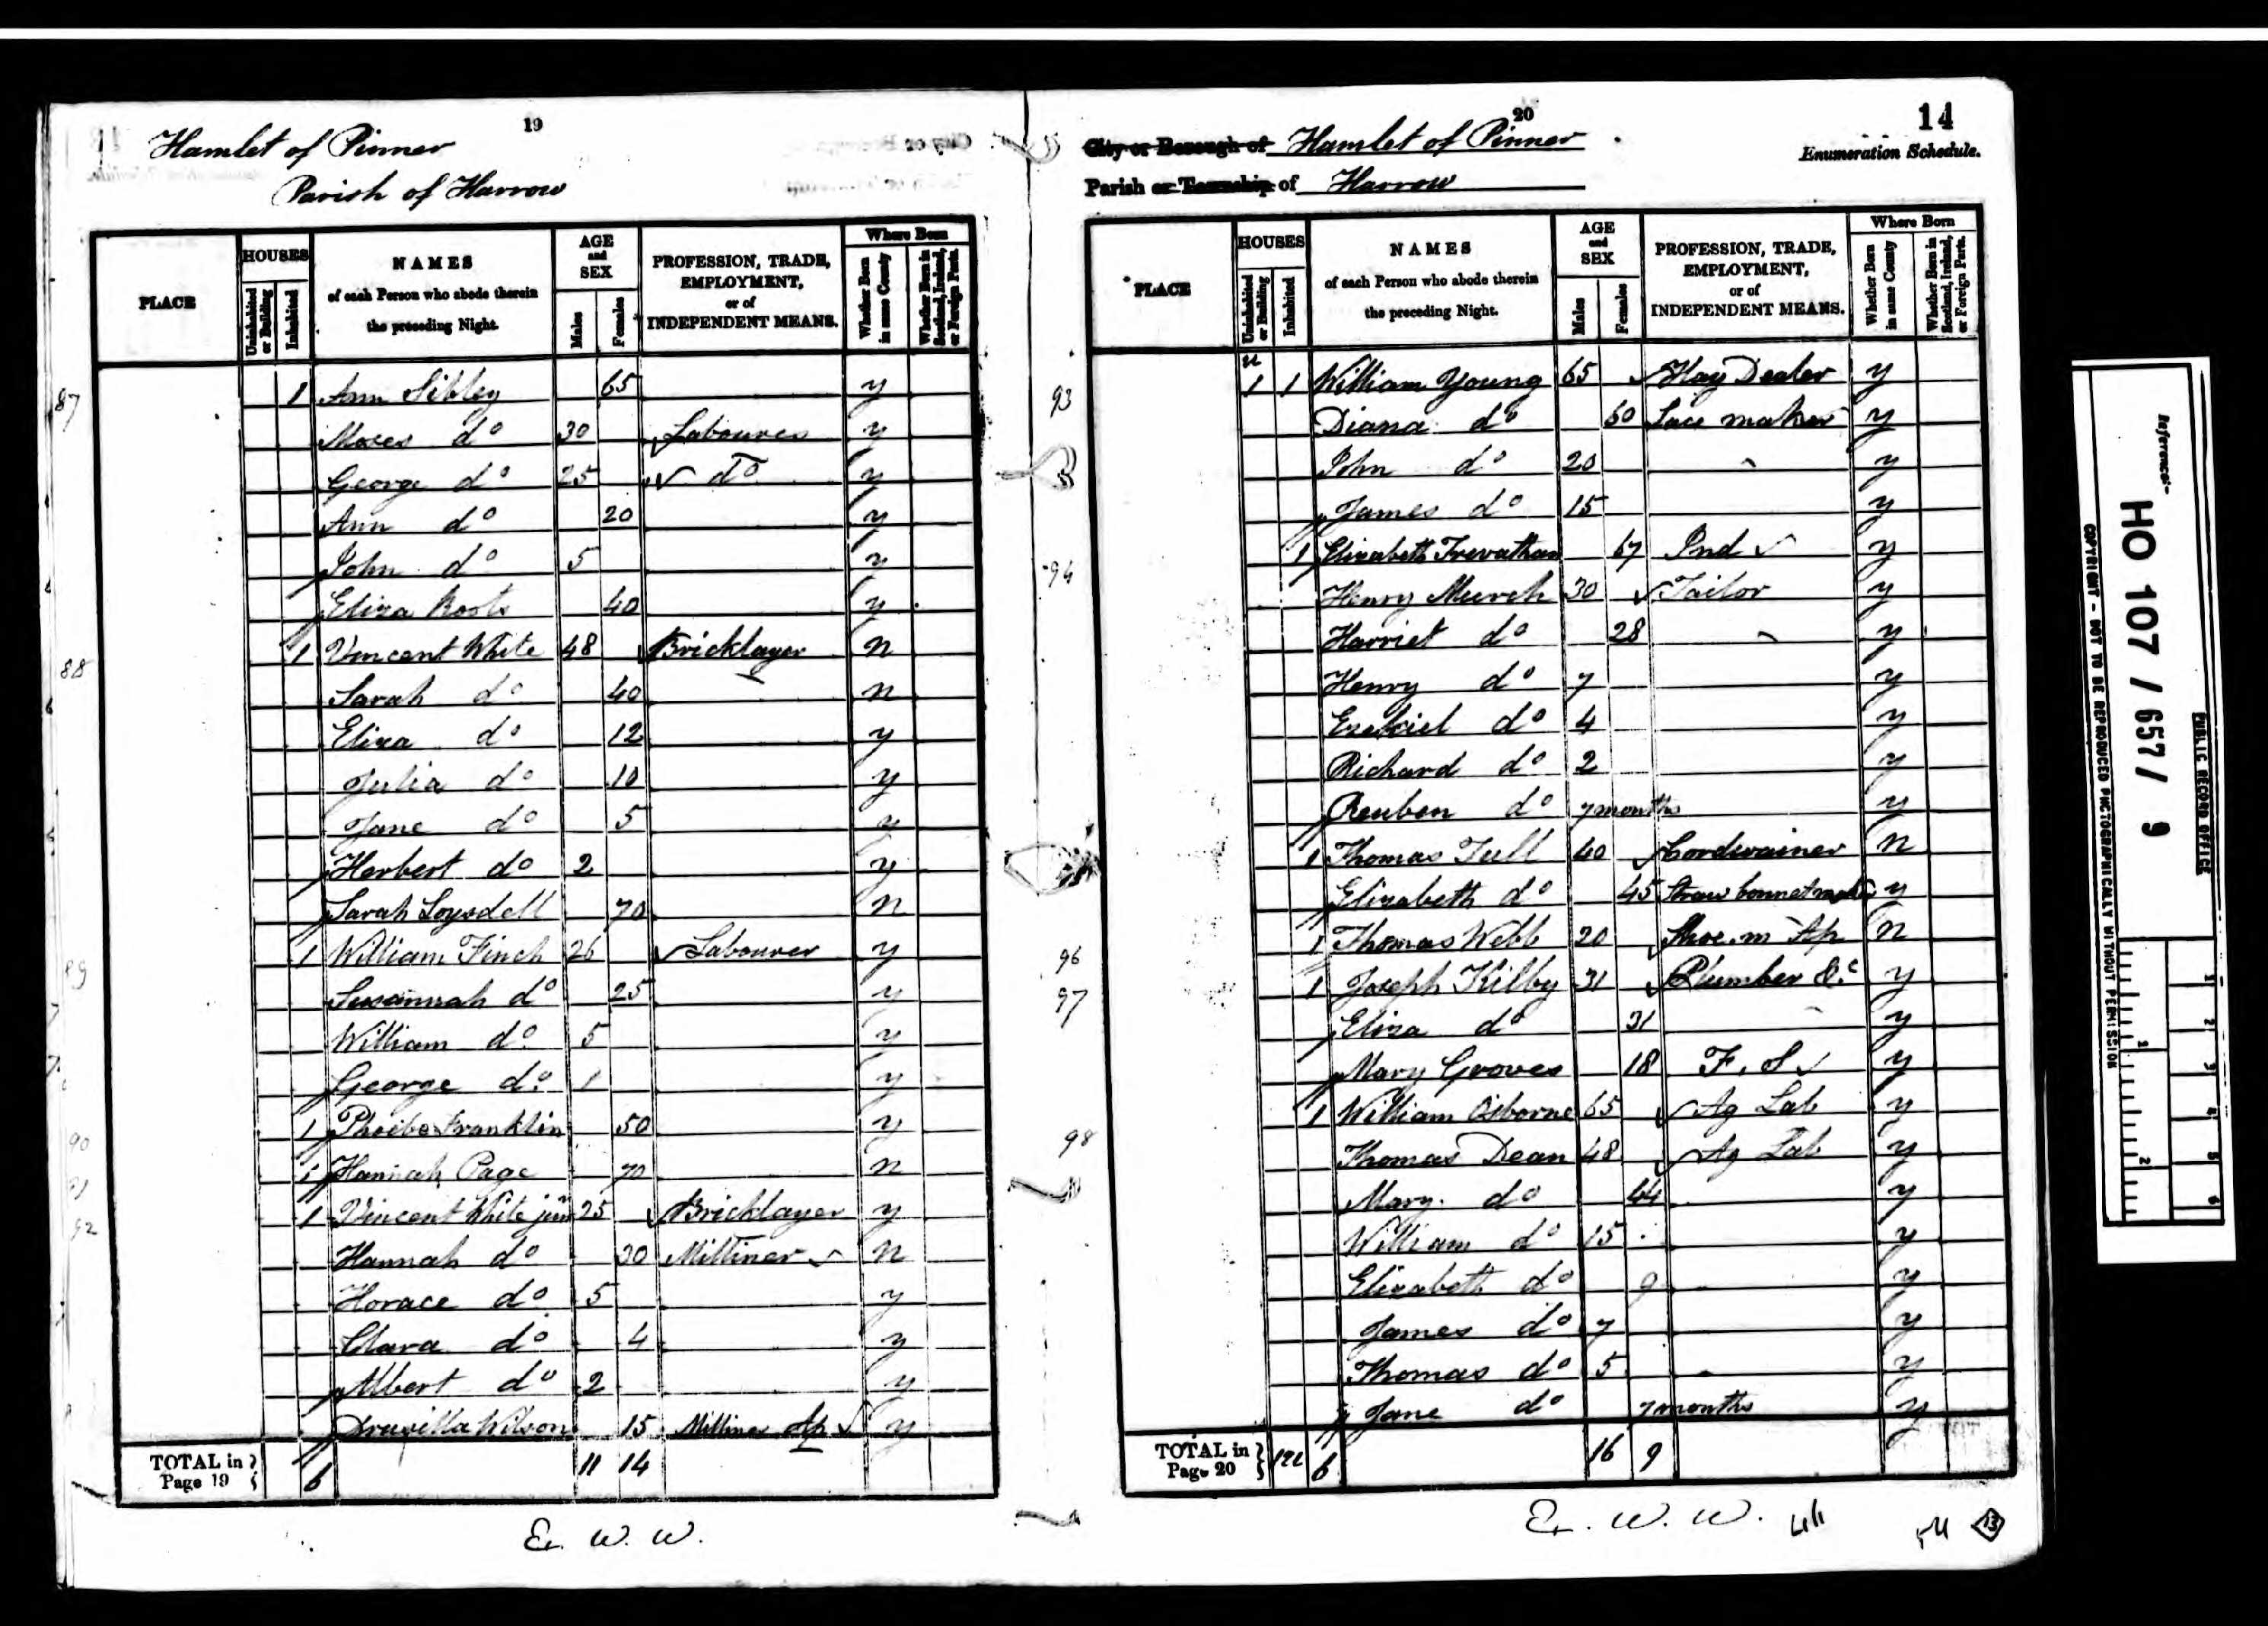 19
Hamlet of Pinner
Parish of Harrow
PLACE
HOUSES
Uninhabited or Building
Inhabited
NAMES
of each Person who abode therein
the preceding Night.
AGE
and
SEX
Males
Females
PROFESSION, TRADE,
EMPLOYMENT,
or of
INDEPENDENT MEANS.
Where Born
Whether Born in same County
Whether Born in Scotland, Ireland, or Foreign Parts.
87 1 Ann Sibley 65 y
Moses do 30 Labourer y
George do 25 do y
Ann do 20 y
John do 5 y
Eliza Roots 40 y
88 1 Vincent White 48 Bricklayer n
Sarah do 40 n
Eliza do 12 y
Julia do 10 y
Jane do 5 y
Herbert do 2 y
Sarah 70 n
89 1 William Finch 26 Labourer y
Susannah do 25 y
William do 5 y
George do 1 y
90 1 Phoebe Franklin 50 y
91 1 Hannah Page 70 n
92 1 Vincent White jun 25 Bricklayer y
Hannah do 30 Milliner n
Horace do 5 y
Clara do 4 y
Albert do 2 y
Drusilla Wilson 15 Milliner Ap y
TOTAL in Page 19 6 11 14
E. W. W.
20
14
City or Borough of Hamlet of Pinner
Enumeration Schedule.
Parish or Township of Harrow
PLACE
HOUSES
Uninhabited or Building
Inhabited
NAMES
of each Person who abode therein
the preceding Night.
AGE
and
SEX
Males
Females
PROFESSION, TRADE,
EMPLOYMENT,
or of
INDEPENDENT MEANS.
Where Born
Whether Born in same County
Whether Born in Scotland, Ireland, or Foreign Parts.
93 u 1 1 William Young 65 Hay Dealer y
Diana do 60 Lace maker y
John do 20 y
James do 15 y
94 1 Elizabeth Trevathan 67 Ind y
Henry Murch 30 Tailor y
Harriet do 28 y
Henry do 7 y
Ezekiel do 4 y
Richard do 2 y
Reuben do 7 months y
1 Thomas Tull 40 Cordwainer n
Elizabeth do 45 Straw bonnet maker y
96 1 Thomas Webb 20 Shoe m Ap n
97 1 Joseph Kilby 31 Plumber &c y
Eliza do 31 y
Mary Groves 18 F. S y
98 1 William Osborne 65 Ag Lab y
Thomas Dean 48 Ag Lab y
Mary do 44 y
William do 15 y
Elizabeth do 9 y
James do 7 y
Thomas do 5 y
Jane do 7 months y
TOTAL in Page 20 6 16 9
E. W. W.
13
Reference:-
HO 107 / 657 / 9
PUBLIC RECORD OFFICE
COPYRIGHT - NOT TO BE REPRODUCED PHOTOGRAPHICALLY WITHOUT PERMISSION
1
2
1 2 3 4 5 6